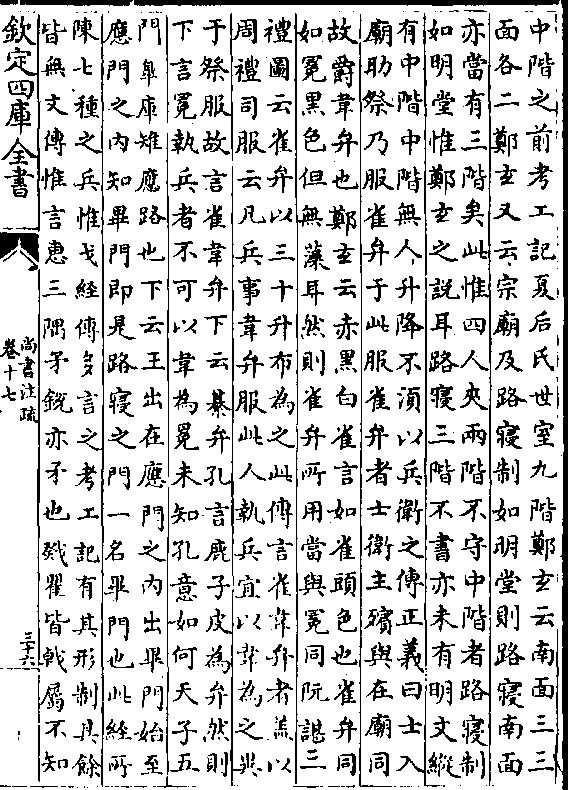 中階之前考工記夏后氏世室九階鄭玄云南面三三
面各二鄭玄又云宗廟及路寝制如明堂則路寝南面
亦當有三階矣此惟四人夾兩階不守中階者路寝制
如明堂惟鄭玄之說耳路寝三階不書亦未有明文縱
有中階中階無人升降不須以兵衛之傳正義曰士入
廟助祭乃服雀弁于此服雀弁者士衛主殯與在廟同
故爵韋弁也鄭玄云赤黑曰雀言如雀頭色也雀弁同
如冕黑色但無藻耳然則雀弁所用當與冕同阮諶三
禮圖云雀弁以三十升布為之此傳言雀韋弁者蓋以
周禮司服云凡兵事韋弁服此人執兵宜以韋為之異
于祭服故言雀韋弁下云綦弁孔言鹿子皮為弁然則
下言冕執兵者不可以韋為冕未知孔意如何天子五
門皐庫雉應路也下云王出在應門之内出畢門始至
應門之内知畢門即是路寝之門一名畢門也此經所
陳七種之兵惟戈經傳多言之考工記有其形制其餘
皆無文傳惟言惠三隅矛銳亦矛也戣瞿皆戟屬不知
欽定四庫全書
尚書注疏
卷十七
三十六